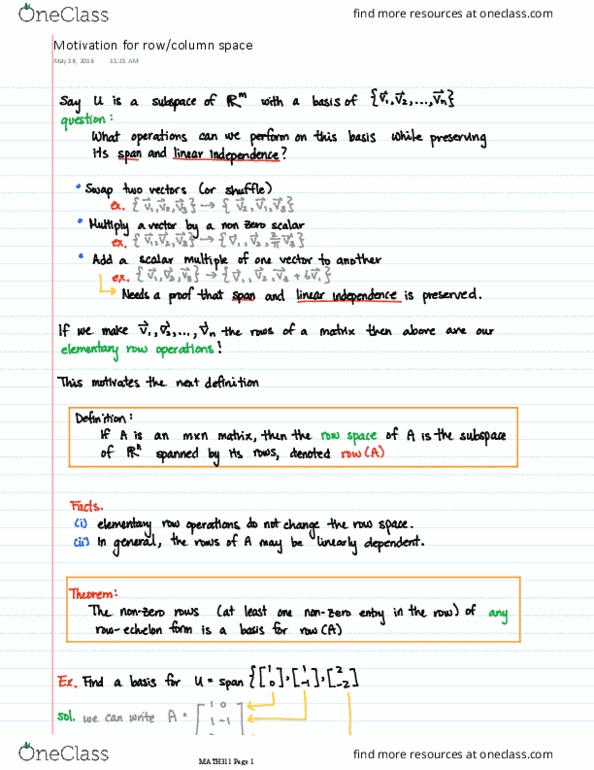 OneClass
find more resources at oneclass.com
Motivation for row/column space
May 18, 2016 11:21 AM
Say U is a subspace of ℝᵐ with a basis of {v⃗₁, v⃗₂, ..., v⃗ₙ}
question:
What operations can we perform on this basis while preserving
its span and linear independence?
• Swap two vectors (or shuffle)
ex. {v⃗₁, v⃗₂, v⃗₃} → {v⃗₂, v⃗₁, v⃗₃}
• Multiply a vector by a non zero scalar
ex. {v⃗₁, v⃗₂, v⃗₃} → {v⃗₁, v⃗₂, 2/π v⃗₃}
• Add a scalar multiple of one vector to another
ex. {v⃗₁, v⃗₂, v⃗₃} → {v⃗₁, v⃗₂, v⃗₃ + 6v⃗₁}
Needs a proof that span and linear independence is preserved.
If we make v⃗₁, v⃗₂, ..., v⃗ₙ the rows of a matrix then above are our
elementary row operations!
This motivates the next definition
Definition:
If A is an mxn matrix, then the row space of A is the subspace
of ℝⁿ spanned by its rows, denoted row(A)
Facts.
(i) elementary row operations do not change the row space.
(ii) In general, the rows of A may be linearly dependent.
Theorem:
The non-zero rows (at least one non-zero entry in the row) of any
row-echelon form is a basis for row(A)
Ex. Find a basis for U = span {[1 0], [1 -1], [2 -2]}
sol. we can write A = [1 0
1 -1
OneClass
find more resources at oneclass.com
MATH311 Page 1